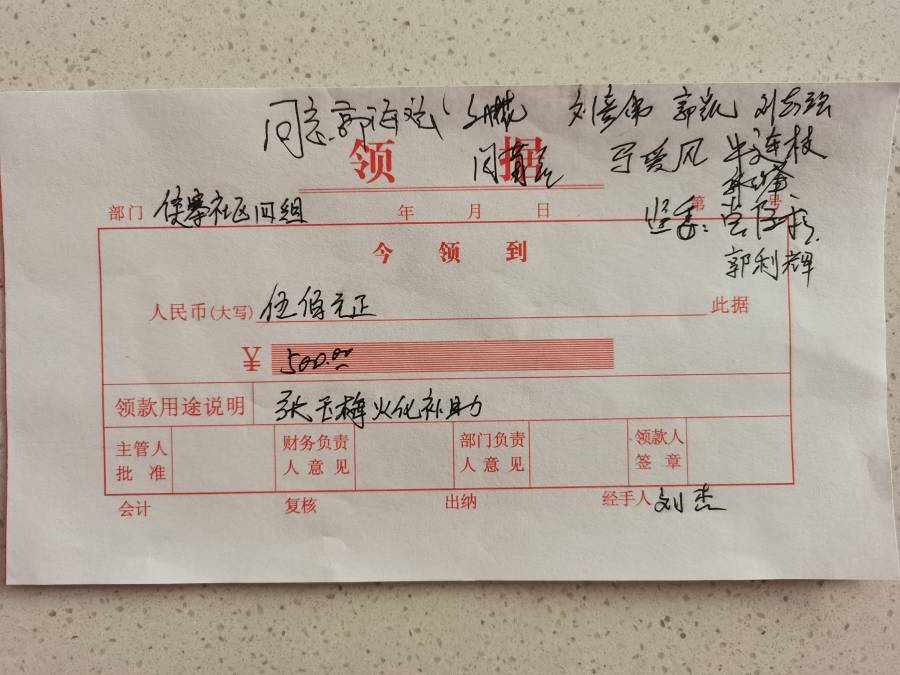 同意 郭海 刘彦伟 郭凯 刘
领据
于爱风 牛连枝
部门 社区四组 年 月 日 第 号
监委:
今领到
郭利辉
人民币(大写) 伍佰元正 此据
¥ 500.00
领款用途说明 张玉梅火化补助
主管人 财务负责 部门负责 领款人
批准 人意见 人意见 签章
会计 复核 出纳 经手人 刘杰